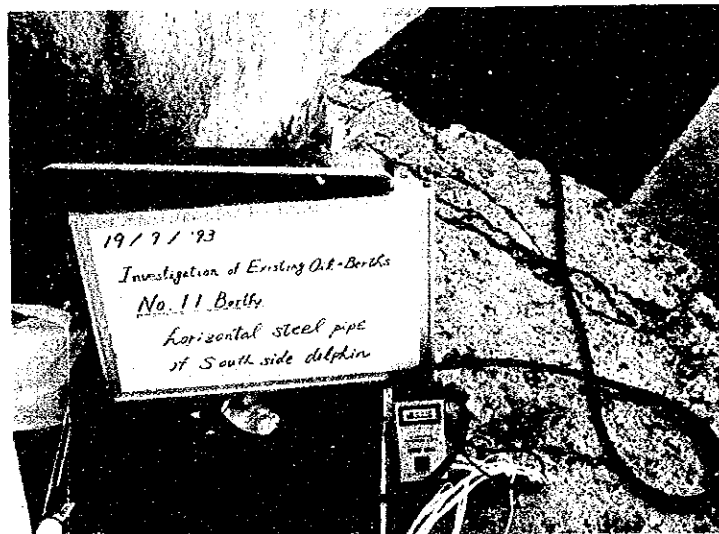 19/9/'93
Investigation of Existing Oil-Berths
No. 11 Berth
horizontal steel pipe
of South side dolphin